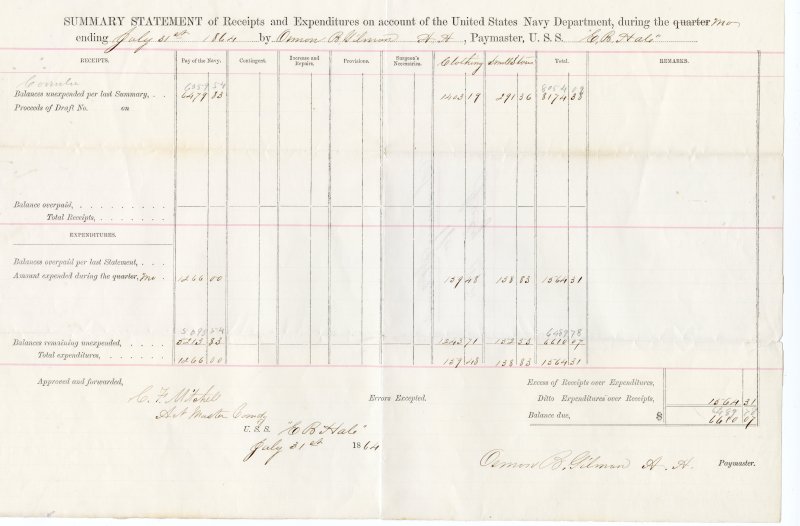 SUMMARY STATEMENT of Receipts and Expenditures on account of the United States Navy Department, during the quarter Mo
ending July 31st 1864 by Osmon B. Gilman A A, Paymaster, U. S. S. "C. B. Hale"
RECEIPTS. Pay of the Navy. Contingent. Increase and Repairs. Provisions. Surgeon's Necessaries. Clothing Small Stores Total. REMARKS.
Balances unexpended per last Summary, . . 6479 83 1403 19 291 36 8174 38
Proceeds of Draft No. on
Balance overpaid, . . . . . . . . . .
Total Receipts, . . . . . . .
EXPENDITURES.
Balances overpaid per last Statement, . . .
Amount expended during the quarter, Mo . 1266 00 159 48 138 83 1564 31
Balances remaining unexpended, . . . . . 5213 83 1243 71 152 53 6610 07
Total expenditures, . . . . . . 1266 00 159 48 138 83 1564 31
Approved and forwarded,
Excess of Receipts over Expenditures,
C. F. Mitchell
Errors Excepted.
Ditto Expenditures over Receipts, 1564 31
Act Master Comdg
Balance due, $ 6610 07
U. S. S. "C. B. Hale"
July 31st 1864
Osmon B. Gilman A. A. Paymaster.